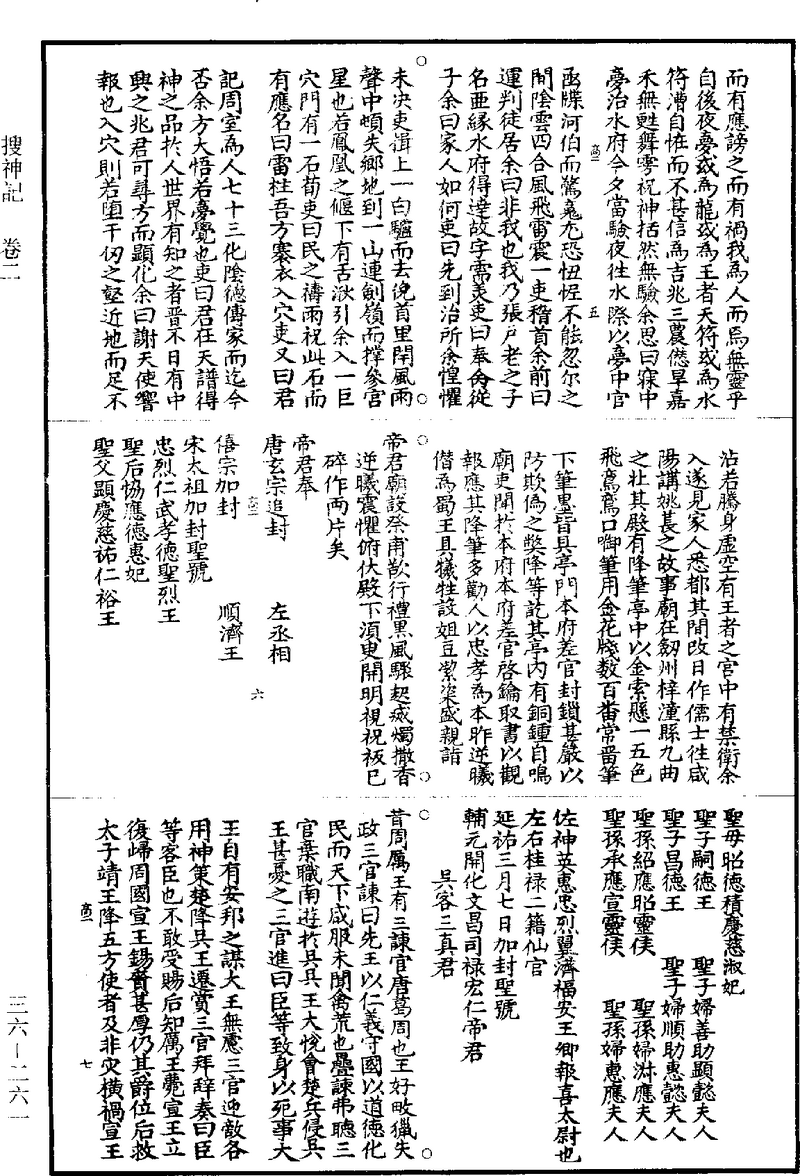 搜神記　卷二
而有應謗之而有禍我為人而烏無靈乎
自後夜夢或為龍或為王者天符或為水
符漕自恠而不甚信為吉兆三農僽旱嘉
禾無甦舞雩祝神括然無驗余思曰寐中
夢治水府今夕當驗夜徃水際以夢中官
高二　五
亟牒河伯而驚䰟尤恐忸怩不能忽尔之
間陰雲四合風飛雷震一吏稽首余前曰
運判徒居余曰非我也我乃張戶老之子
名亞縁水府得達故字霈羙吏曰奉命從
子余曰家人如何吏曰先到治所余惶懼
未决吏揖上一白驢而去俛首里閈風雨
聲中頓失鄉地到一山連劍嶺而撑參宫
星也若鳳凰之偃下有舌湫引余入一巨
穴門有一石荀吏曰民之禱雨祝此石而
有應名曰雷柱吾方褰衣入穴吏又曰君
記周室為人七十三化陰德傳家而迄今
否余方大悟若夢覺也吏曰君在天譜得
神之品於人世界有知之者晋不日有中
興之兆君可尋方而顯化余曰謝天使響
報也入穴則若堕千仭之壑近地而足不
沾若騰身虛空有王者之宫中有禁衛余
入遂見家人悉都其間改日作儒士徃咸
陽講姚萇之故事廟在劒州梓潼縣九曲
之壯其殿有降筆亭中以金索懸一五色
飛鸞鸞口啣筆用金花牋数百番常畱筆
下筆墨皆具亭門本府差官封鎖甚嚴以
防欺偽之獘降等訖其亭内有銅鍾自鳴
廟吏聞於本府本府差官啓鑰取書以觀
報應其降筆多勸人以忠孝為本昨逆曦
僭為蜀王具犧牲設俎豆絜粢盛親詣
帝君廟設祭甫歆行禮黒風驟起㓕燭撒香
逆曦震懼俯伏殿下湏臾開明視祝板已
碎作两片矣
帝君奉
唐玄宗追封　左丞相
高二　六
僖宗加封　順濟王
宋太祖加封聖號
忠烈仁武孝德聖烈王
聖后協應德惠妃
聖父顯慶慈祐仁裕王
聖母昭德積慶慈淑妃
聖子嗣德王　聖子婦善助顯懿夫人
聖子昌德王　聖子婦順助惠懿夫人
聖孫紹應昭靈侯　聖孫婦淋應夫人
聖孫承應宣靈侯　聖孫婦惠應夫人
佐神英惠忠烈翼濟福安王卿報喜太尉也
左右桂禄二籍仙官
延祐三月七日加封聖號
輔元開化文昌司禄宏仁帝君
吳客三真君
昔周厲王有三諫官唐葛周也王好畋獵失
政三官諫曰先王以仁義守國以道德化
民而天下咸服未聞禽荒也疊諫弗聽三
官棄職南遊於吳吳王大悅會楚兵侵吳
王甚憂之三官進曰臣等致身以死事大
王自有安邦之謀大王無慮三官迎敵各
用神策楚降吳王遷賞三官拜辞奏曰臣
等客臣也不敢受賜后知厲王薨宣王立
復歸周國宣王錫賚甚厚仍其爵位后救
太子靖王降五方使者及非灾横禍宣王
高二　七
三六—二六一